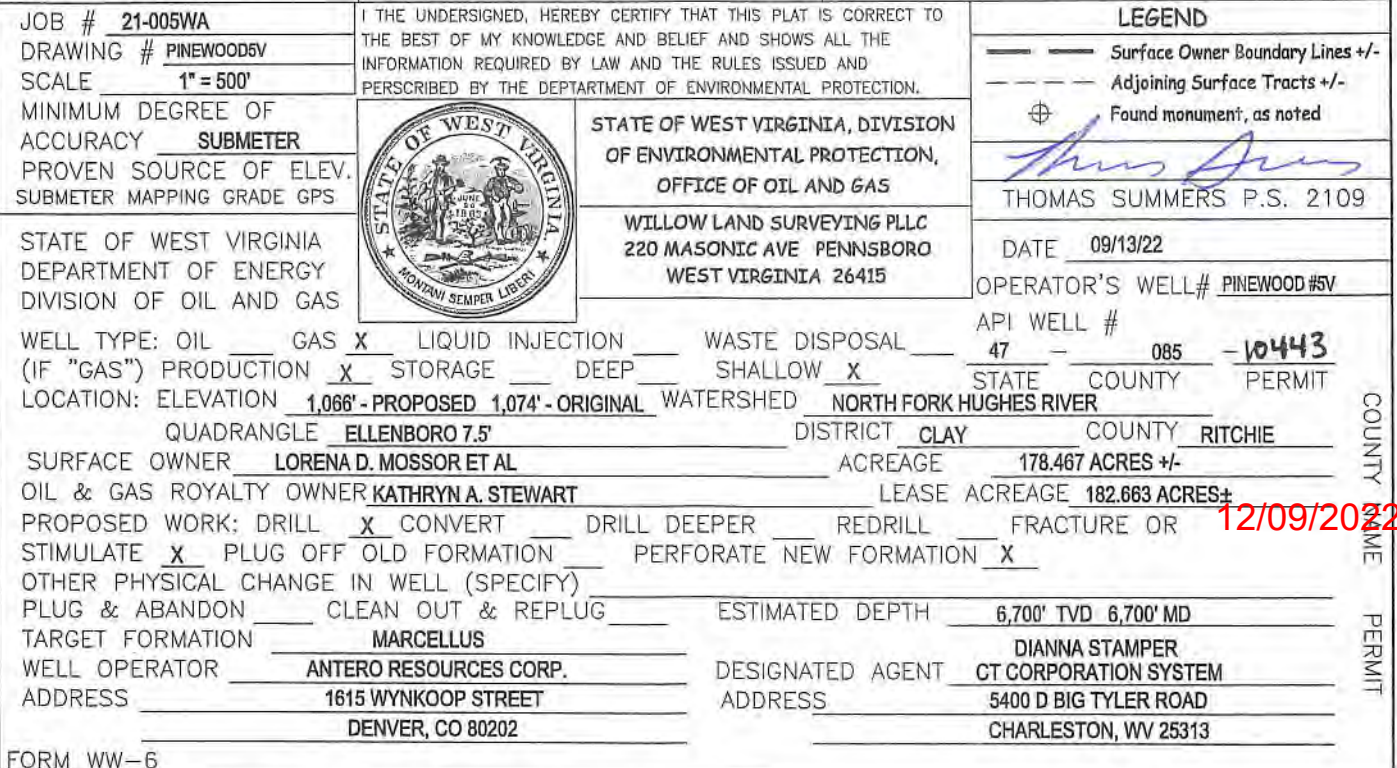 JOB # 21-005WA
DRAWING # PINEWOOD5V
SCALE 1" = 500'
MINIMUM DEGREE OF
ACCURACY SUBMETER
PROVEN SOURCE OF ELEV.
SUBMETER MAPPING GRADE GPS
STATE OF WEST VIRGINIA
DEPARTMENT OF ENERGY
DIVISION OF OIL AND GAS
I THE UNDERSIGNED, HEREBY CERTIFY THAT THIS PLAT IS CORRECT TO
THE BEST OF MY KNOWLEDGE AND BELIEF AND SHOWS ALL THE
INFORMATION REQUIRED BY LAW AND THE RULES ISSUED AND
PERSCRIBED BY THE DEPTARTMENT OF ENVIRONMENTAL PROTECTION.
STATE OF WEST VIRGINIA.
JUNE
20
1863
MONTANI SEMPER LIBERI
STATE OF WEST VIRGINIA, DIVISION
OF ENVIRONMENTAL PROTECTION,
OFFICE OF OIL AND GAS
WILLOW LAND SURVEYING PLLC
220 MASONIC AVE PENNSBORO
WEST VIRGINIA 26415
LEGEND
Surface Owner Boundary Lines +/-
Adjoining Surface Tracts +/-
Found monument, as noted
THOMAS SUMMERS P.S. 2109
DATE 09/13/22
OPERATOR'S WELL# PINEWOOD #5V
API WELL #
47 – 085 – 10443
STATE COUNTY PERMIT
WELL TYPE: OIL ___ GAS X LIQUID INJECTION ___ WASTE DISPOSAL ___
(IF "GAS") PRODUCTION X STORAGE ___ DEEP ___ SHALLOW X
LOCATION: ELEVATION 1,066' - PROPOSED 1,074' - ORIGINAL WATERSHED NORTH FORK HUGHES RIVER
QUADRANGLE ELLENBORO 7.5' DISTRICT CLAY COUNTY RITCHIE
SURFACE OWNER LORENA D. MOSSOR ET AL ACREAGE 178.467 ACRES +/-
OIL & GAS ROYALTY OWNER KATHRYN A. STEWART LEASE ACREAGE 182.663 ACRES±
PROPOSED WORK: DRILL X CONVERT ___ DRILL DEEPER ___ REDRILL ___ FRACTURE OR
12/09/2022
STIMULATE X PLUG OFF OLD FORMATION ___ PERFORATE NEW FORMATION X
OTHER PHYSICAL CHANGE IN WELL (SPECIFY)
PLUG & ABANDON ___ CLEAN OUT & REPLUG ___ ESTIMATED DEPTH 6,700' TVD 6,700' MD
TARGET FORMATION MARCELLUS
WELL OPERATOR ANTERO RESOURCES CORP.
ADDRESS 1615 WYNKOOP STREET
DENVER, CO 80202
DIANNA STAMPER
DESIGNATED AGENT CT CORPORATION SYSTEM
ADDRESS 5400 D BIG TYLER ROAD
CHARLESTON, WV 25313
FORM WW-6
COUNTY NAME PERMIT